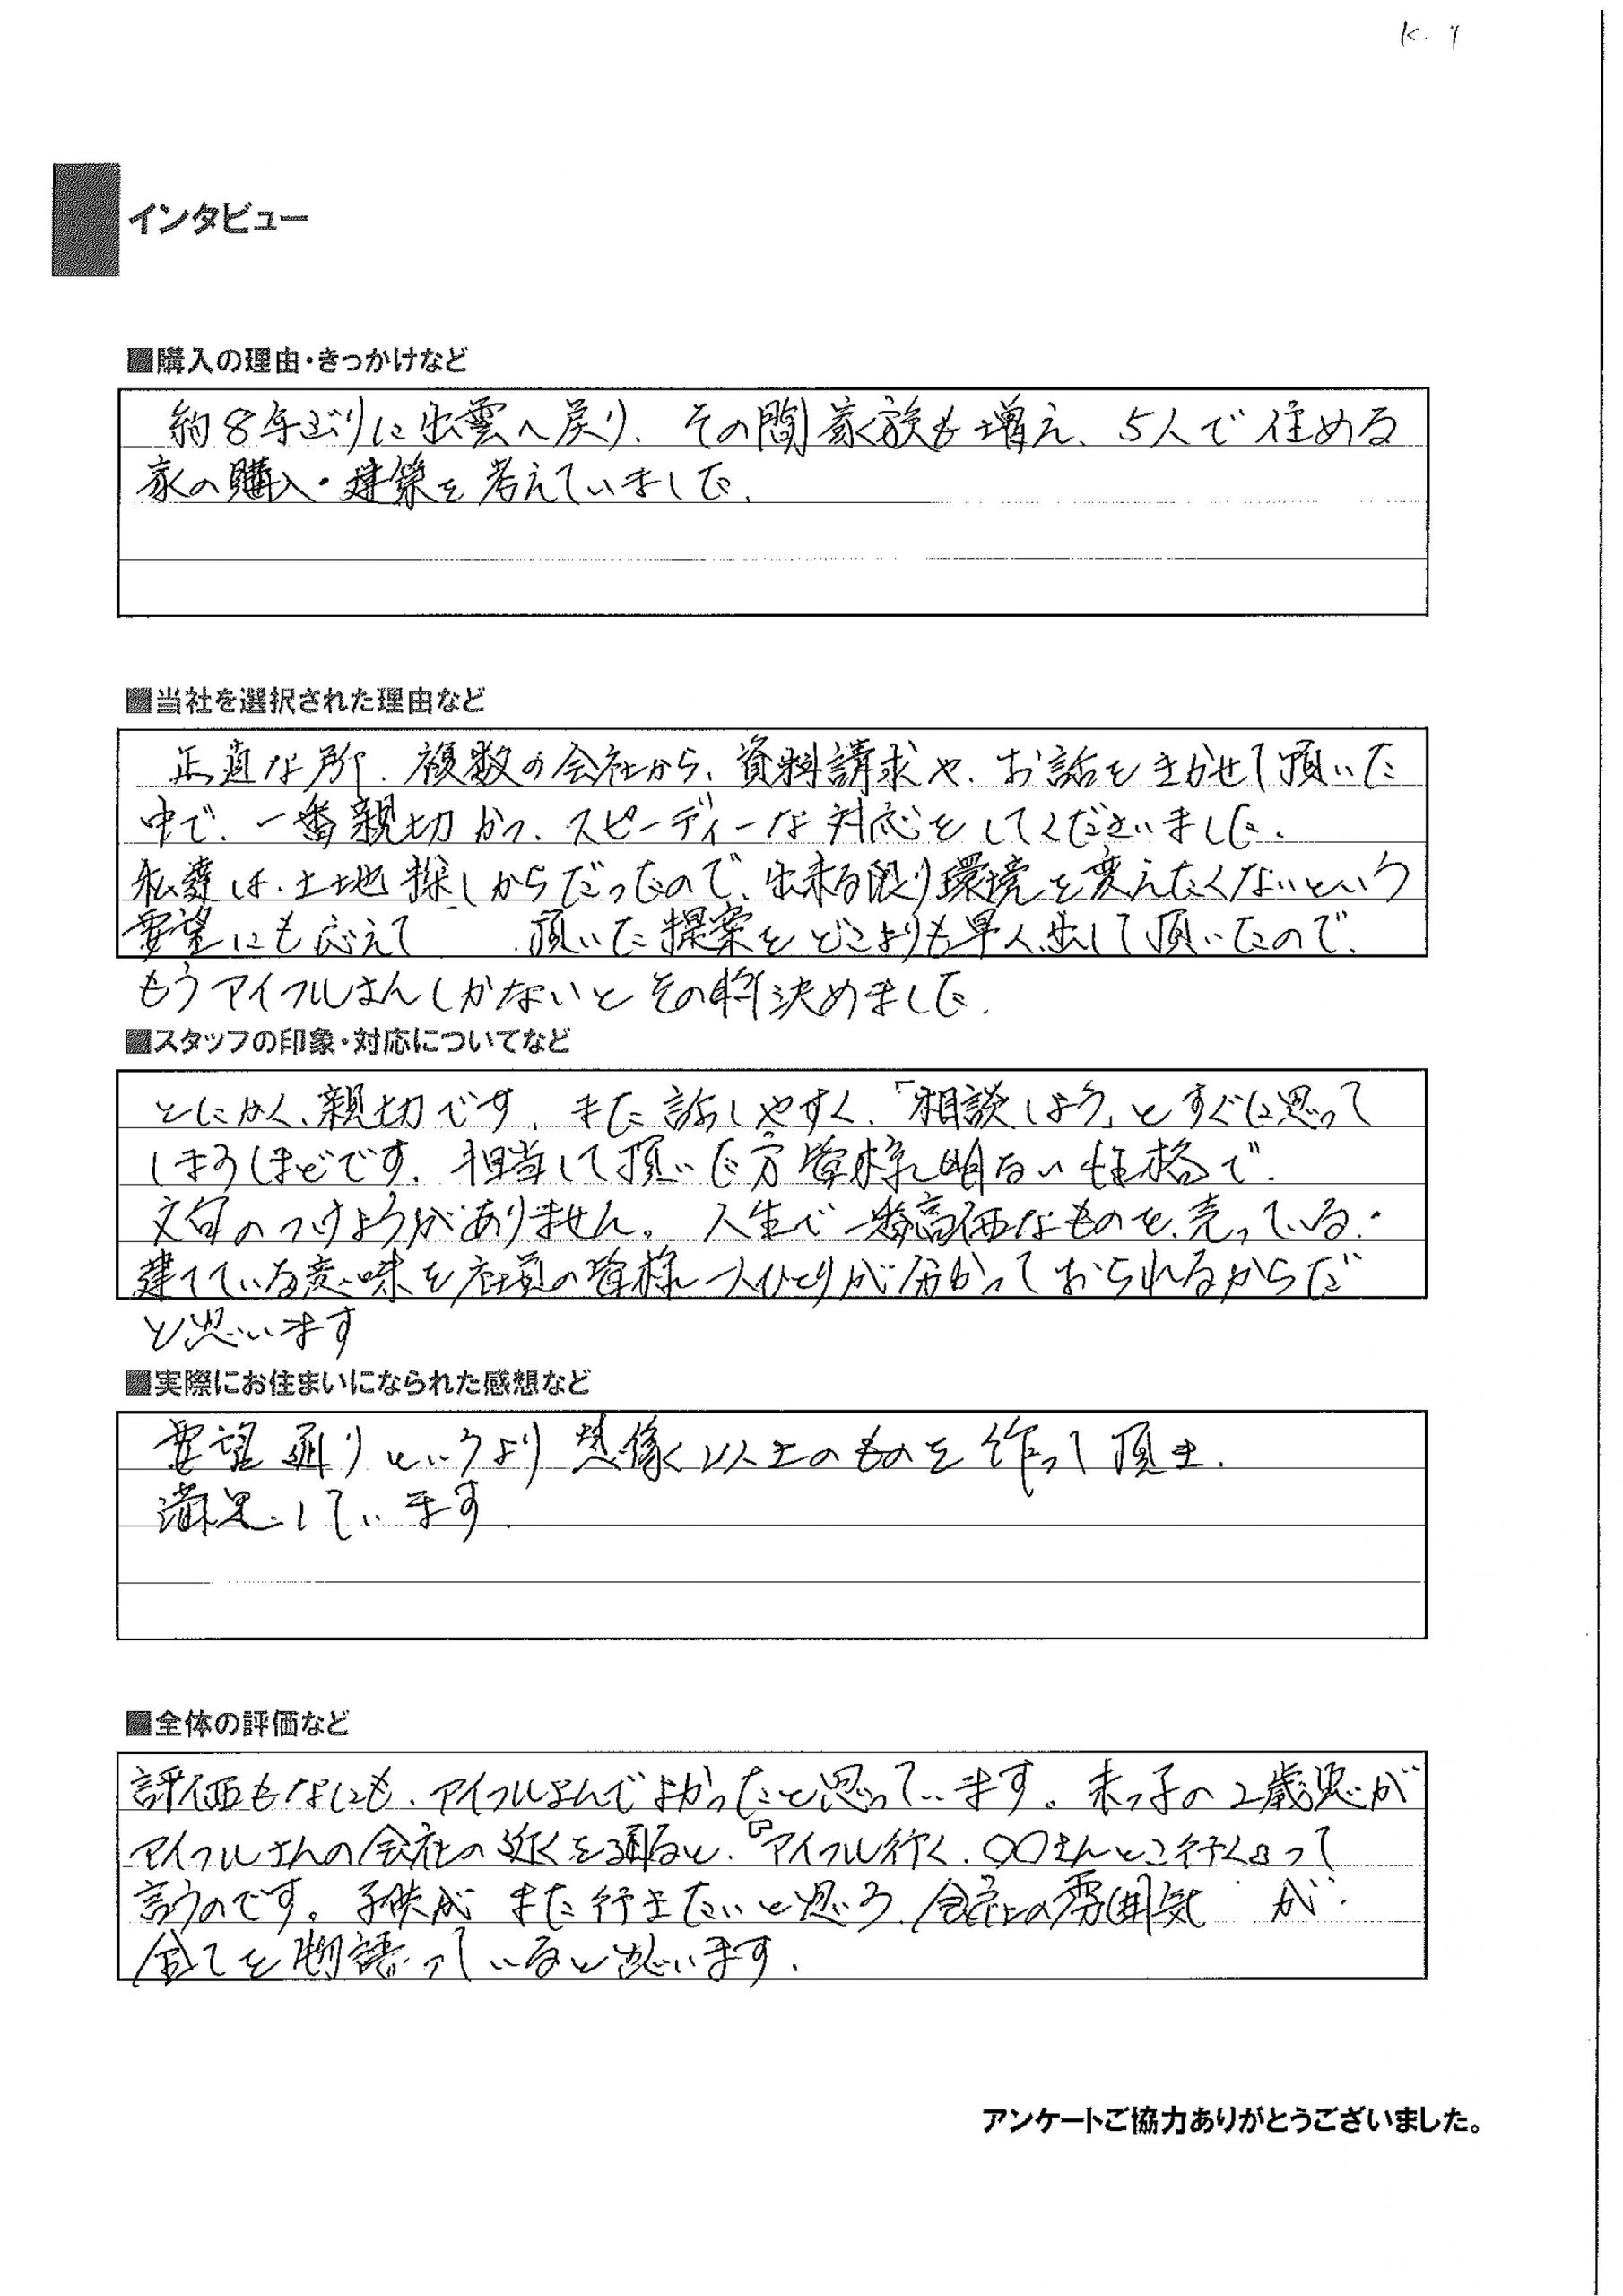 K.
インタビュー
■購入の理由・きっかけなど
約8年ぶりに出雲へ戻り、その間家族も増え、5人で住める
家の購入・建築を考えていました。
■当社を選択された理由など
正直な所、複数の会社から、資料請求や、お話をきかせて頂いた
中で、一番親切かつ、スピーディーな対応をしてくださいました。
私達は、土地探しからだったので、出来る限り環境を変えたくないという
要望にも応えて 頂いた提案をどこよりも早く出して頂いたので、
もうアイフルさんしかないとその時決めました。
■スタッフの印象・対応についてなど
とにかく、親切です。また話しやすく、「相談しよう」とすぐに思って
しまうほどです。担当して頂いた方皆様明るい性格で、
文句のつけようがありません。人生で一番高価なものを、売っている・
建てている意味を社員の皆様一人ひとりが分かっておられるからだ
と思います
■実際にお住まいになられた感想など
要望通りというより想像以上のものを作って頂き、
満足しています。
■全体の評価など
評価もなにも、アイフルさんでよかったと思っています。末っ子の2歳児が
アイフルさんの会社の近くを通ると、『アイフル行く、〇〇さんとこ行く』って
言うのです。子供が また行きたいと思う、会社の雰囲気 が
全てを物語っていると思います。
アンケートご協力ありがとうございました。